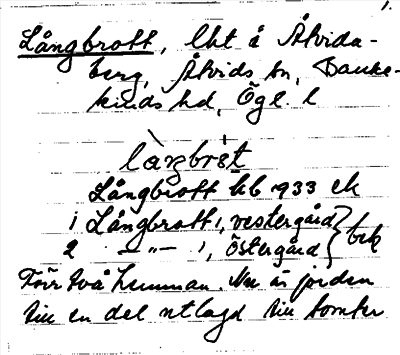 1.
Långbrott, lht å Åtvida-
berg, Åtvids sn, Banke-
kinds hd, Ögl. l
làŋbròt
Långbrott kb 1933 ek
1 Långbrott 1, vestergård } bek
2 — " — 1, Östergård
Förr två hemman. Nu är jorden
till en del utlagd till tomter